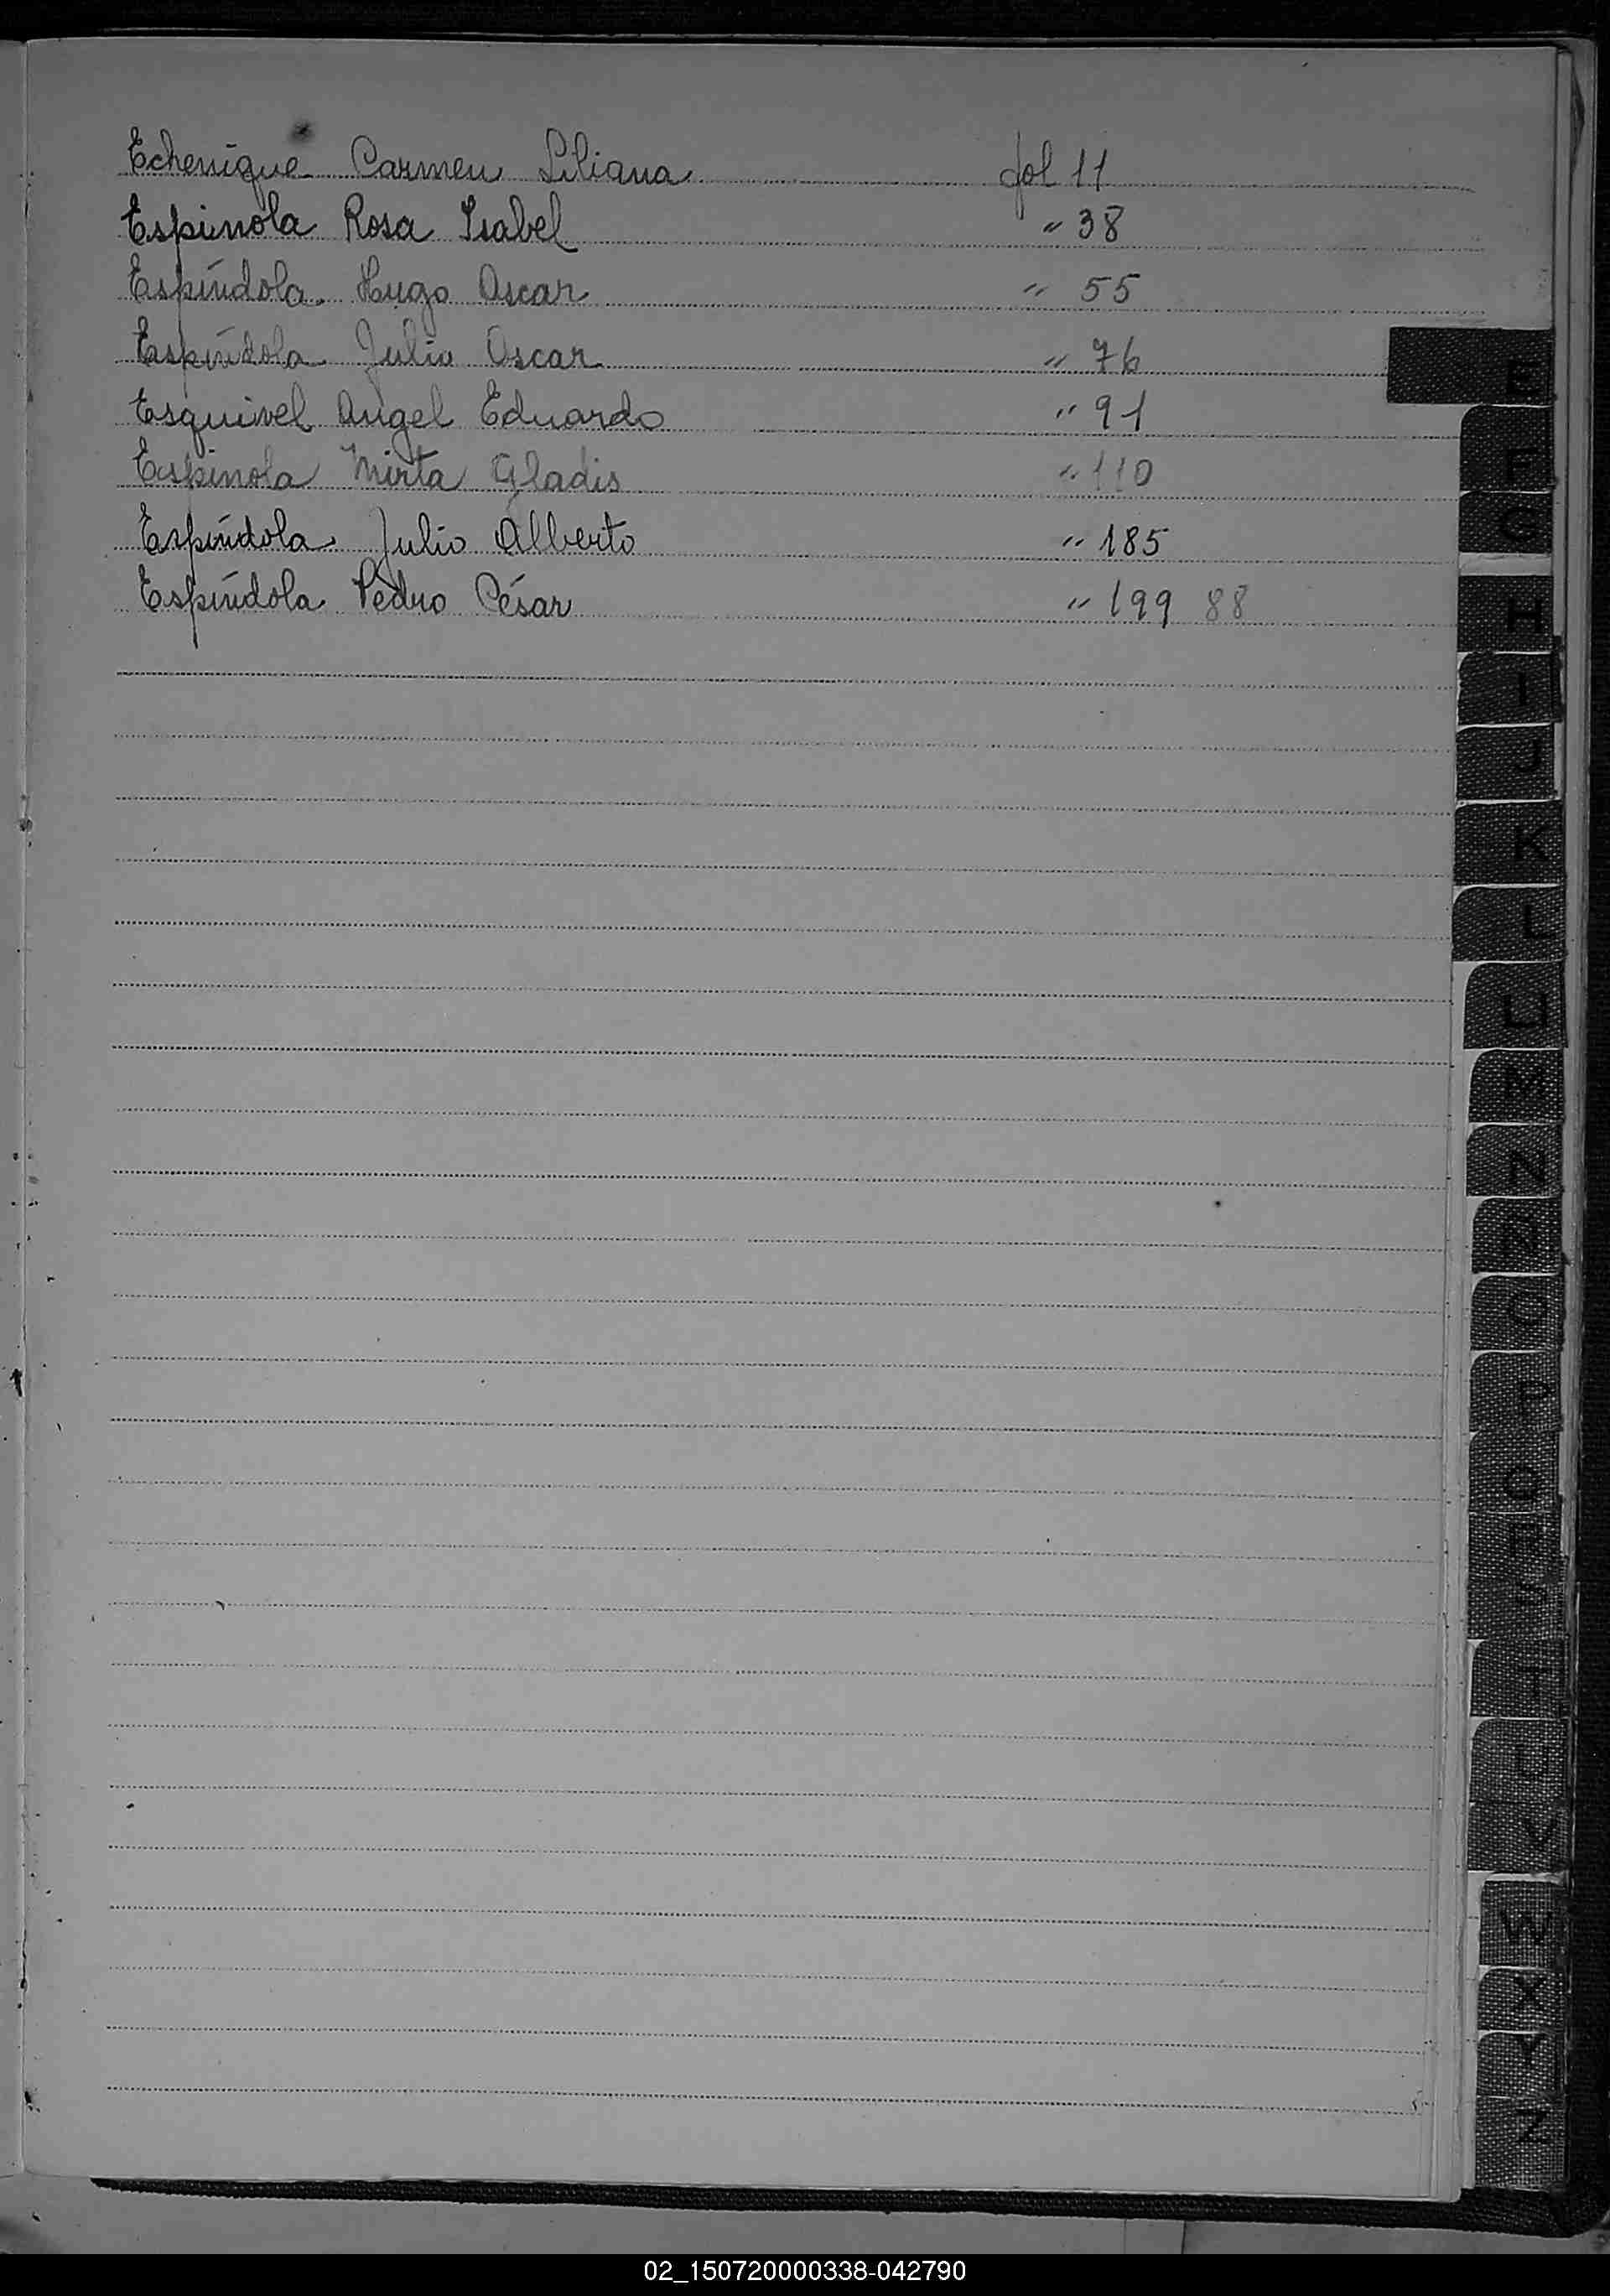 Echenique Carmen Liliana fol 11
Espinola Rosa Isabel " 38
Espíndola Hugo Oscar " 55
Espíndola Julio Oscar " 76
Esquivel Angel Eduardo " 91
Espinola Mirta Gladis " 110
Espíndola Julio Alberto " 185
Espíndola Pedro César " 199 88
E
F
G
H
I
J
K
L
LL
M
N
Ñ
O
P
Q
R
S
T
U
V
W
X
Y
Z
02_150720000338-042790